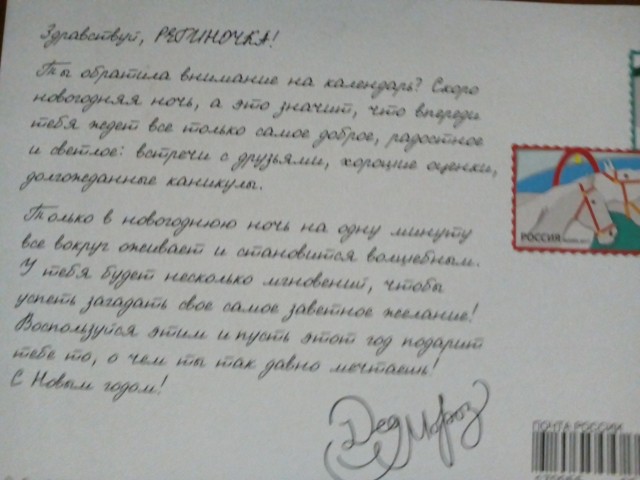 Здравствуй, РЕГИНОЧКА!
Ты обратила внимание на календарь? Скоро
новогодняя ночь, а это значит, что впереди
тебя ждет все только самое доброе, радостное
и светлое: встречи с друзьями, хорошие оценки,
долгожданные каникулы.
Только в новогоднюю ночь на одну минуту
все вокруг оживает и становится волшебным.
У тебя будет несколько мгновений, чтобы
успеть загадать свое самое заветное желание!
Воспользуйся этим и пусть этот год подарит
тебе то, о чем ты так давно мечтаешь!
С Новым годом!
Дед Мороз
РОССИЯ
ПОЧТА РОССИИ